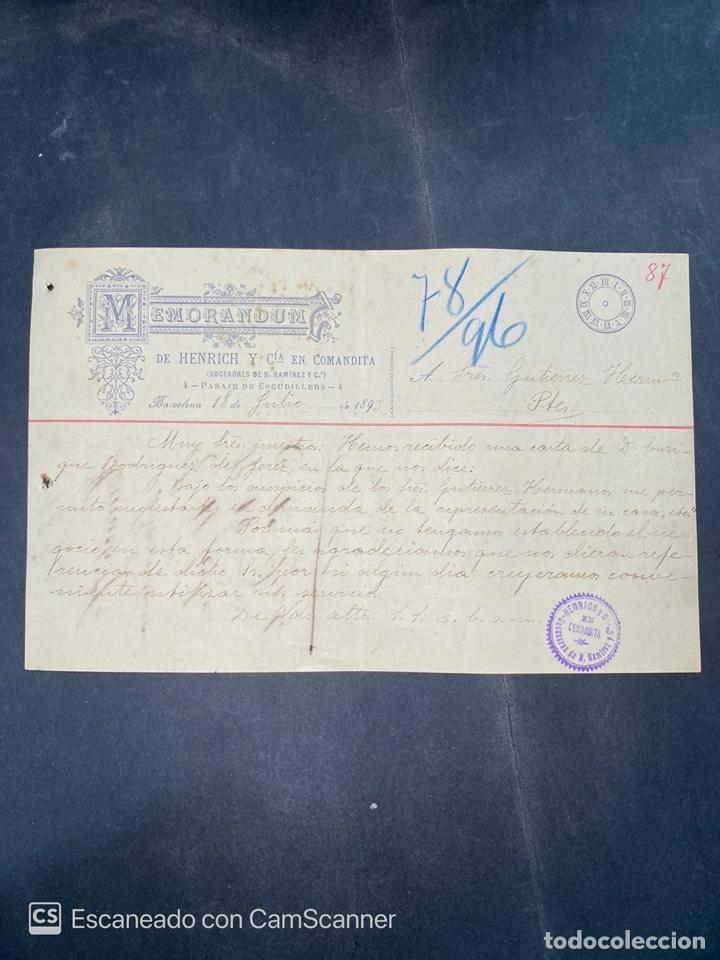 87
78/96
MEMORANDUM
DE HENRICH Y CÍA EN COMANDITA
(SUCESORES DE N. RAMÍREZ Y C.ª)
4 – PASAJE DE ESCUDILLERS – 4
Barcelona 18 de Julio de 1893
XII I II III IV V VI VII VIII IX X XI
A Sres. Gutiérrez Herm.ºs
Pte.
Muy Sres. nuestros: Hemos recibido una carta de D. Enri-
que Rodriguez de Jerez, en la que nos dice:
"Bajo los auspicios de los Sres. Gutiérrez Hermanos me per-
mito molestarles en demanda de la representación de su casa, etc."
Por más que no tengamos establecido el ne-
gocio en esta forma, les agradeceríamos que nos dieran refe-
rencias de dicho Sr. por si algún dia creyeramos conve-
niente utilizar sus servicios.
De Vds. atto. S. S. q. b. s. m.
HENRICH Y Cª
EN
COMANDITA
Sucesores de N. Ramírez y Cª
CS Escaneado con CamScanner
todocoleccion